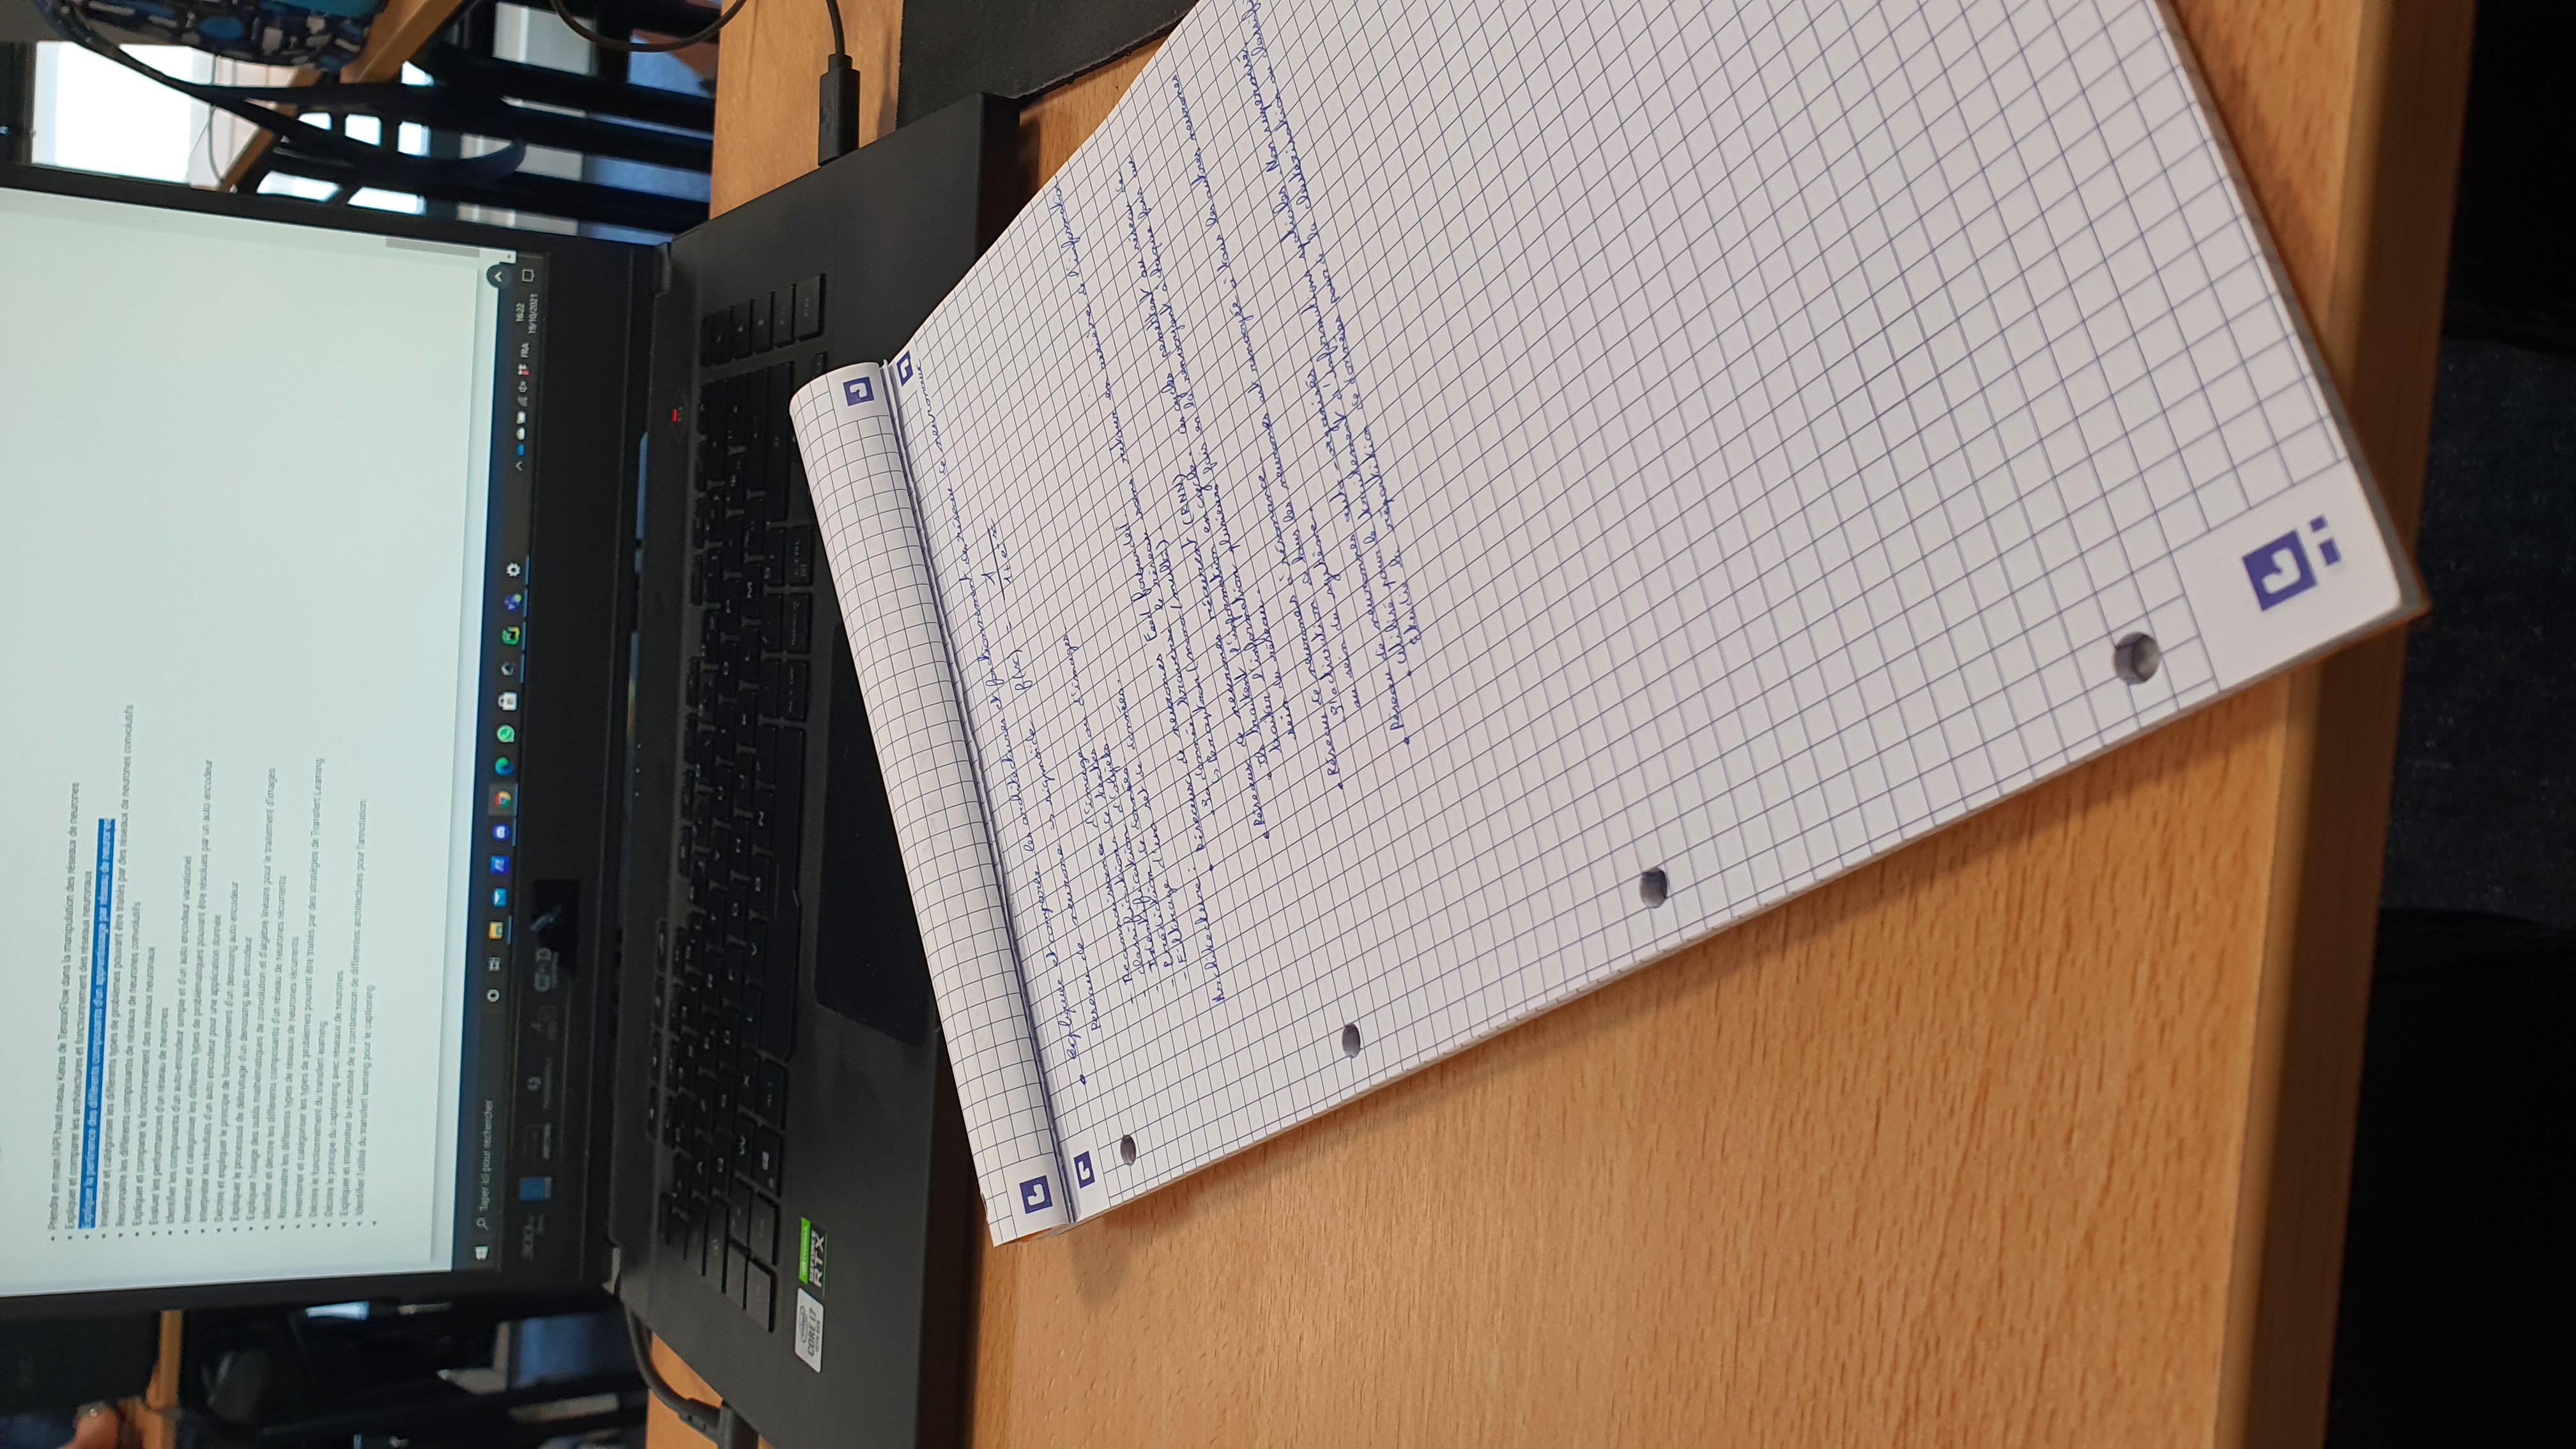 Prendre en main l'API haut niveau Keras de TensorFlow dans la manipulation des réseaux de neurones
Expliquer et comparer les architectures et fonctionnement des réseaux neuronaux
Expliquer la pertinence des différents composants d'un apprentissage par réseau de neurones
Inventorier et catégoriser les différents types de problèmes pouvant être traités par des réseaux de neurones convolutifs
Reconnaitre les différents composants de réseaux de neurones convolutifs
Expliquer et comparer le fonctionnement des réseaux neuronaux
Evaluer les performances d'un réseau de neurones
Identifier les composants d'un auto-encodeur simple et d'un auto encodeur variationel
Inventorier et catégoriser les différents types de problématiques pouvant être résolues par un auto encodeur
Interpréter les résultats d'un auto encodeur pour une application donnée
Décrire et expliquer le principe de fonctionnement d'un denoising auto-encodeur
Expliquer le processus de débruitage d'un denoising auto-encodeur
Expliquer l'usage des outils mathématiques de convolution et d'algèbre linéaire pour le traitement d'images
Identifier et décrire les différents composants d'un réseau de neurones récurrents
Reconnaitre les différents types de réseaux de neurones récurrents
Inventorier et catégoriser les types de problèmes pouvant être traités par des stratégies de Transfert Learning
Décrire le fonctionnement du transfert learning
Décrire le principe du captioning avec réseaux de neurones
Expliquer et interpréter la nécessité de la combinaison de différentes architectures pour l'annotation
Identifier l'utilité du transfert learning pour le captioning
Taper ici pour rechercher
FRA
16:22
19/10/2021
300Hz
intel
CORE i7
10TH GEN
NVIDIA
GEFORCE
RTX
les architectures et fonctionnement de réseau de neuronaux
Réseau de neurone → sigmoïde f(x) = 1
- Reconnaissance d'image
- classifications de textes ou d'images
- Identification d'objets
- Prédiction de données
- Filtrage d'un set de données.
Architecture : • Réseaux de neurones Feed forwarded
donnée traverse le réseau sans retour en arrière de l'information
↳ Perceptron (mono/multi)
• Réseaux de neurones récurent (RNN)
• Ils traitent l'information en cycle. Ces cycles permettent au réseau de
traiter l'information plusieurs fois en la renvoyant à chaque fois au
sein du réseau.
• Réseau de neurones à résonance
L'activation de tous les neurones est renvoyée à tous les autres neurones
au sein du système.
• Réseau de neuronnes auto-organisés
• Utilisé pour le traitement d'informations spatiales. Non supervisé
la répartition de données pour la clusterisation ou